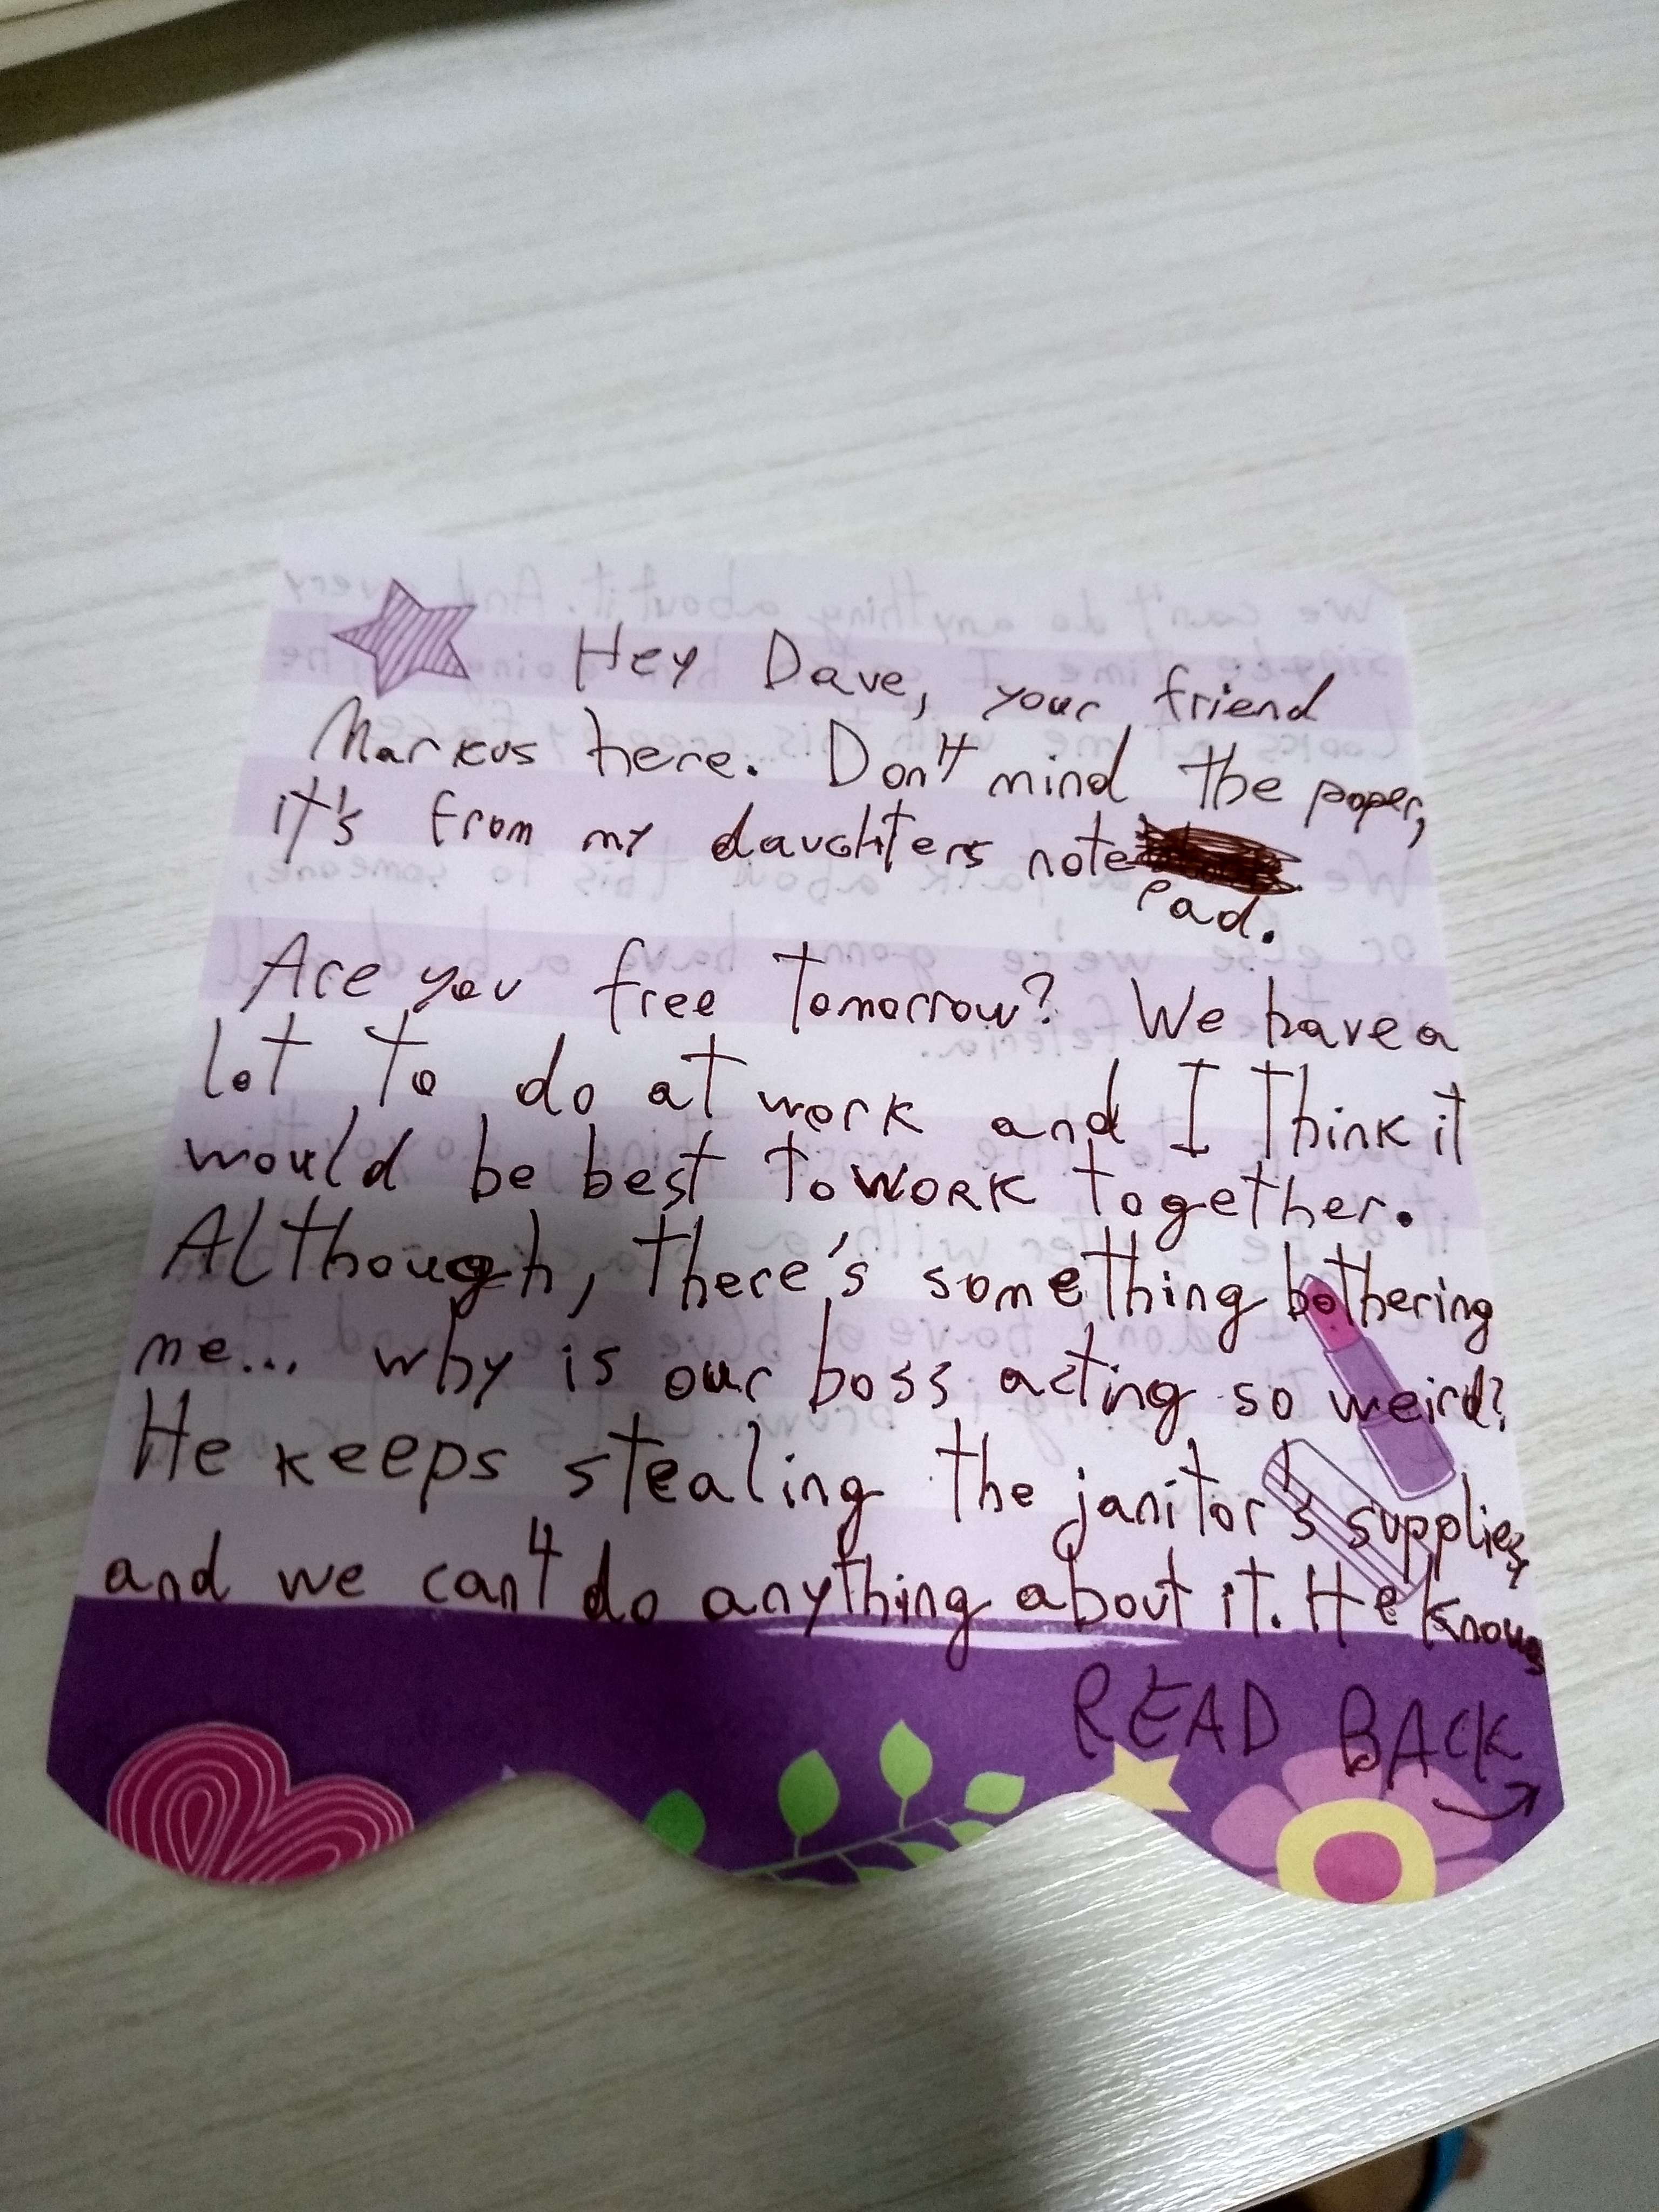 Hey Dave, your friend
Markus here. Don't mind the paper,
it's from my daughters note
Pad.
Are you free tomorrow? We have a
lot to do at work and I think it
would be best to work together.
Although, there's something bothering
me... why is our boss acting so weird?
He keeps stealing the janitor's supplies,
and we can't do anything about it. He knows
READ BACK